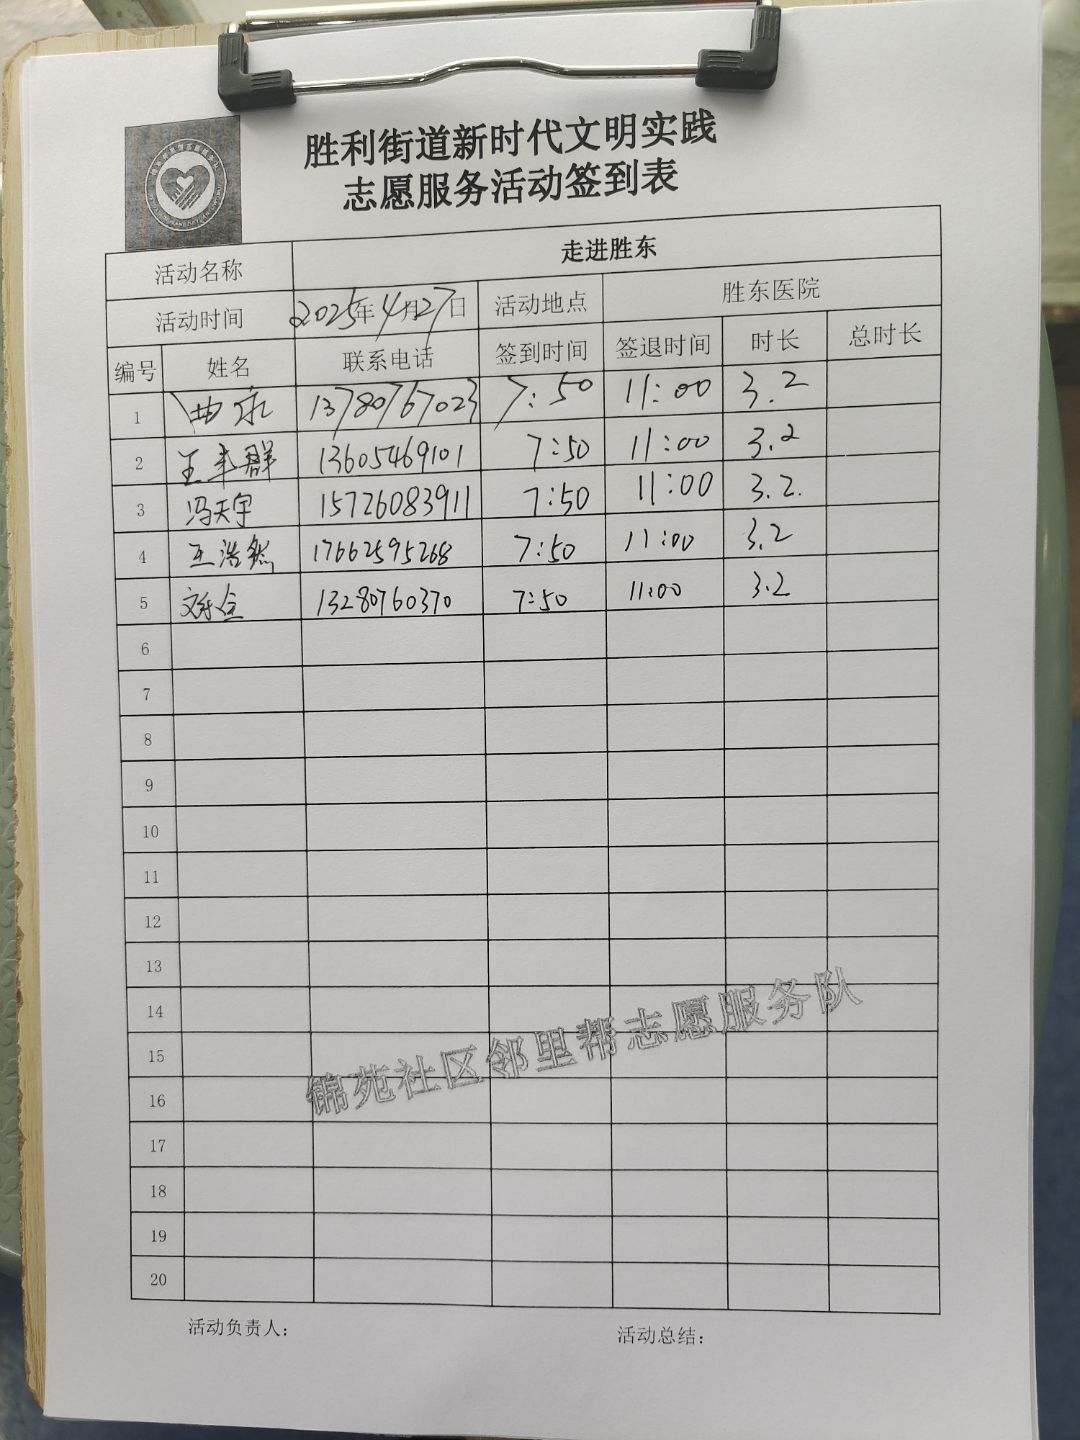 胜利街道新时代文明实践
志愿服务活动签到表
活动名称 走进胜东
活动时间 2025年4月27日 活动地点 胜东医院
编号 姓名 联系电话 签到时间 签退时间 时长 总时长
1 曲永 13780767023 7:50 11:00 3.2
2 王丰群 13605469101 7:50 11:00 3.2
3 冯天宇 15726083911 7:50 11:00 3.2.
4 王浩然 17662595268 7:50 11:00 3.2
5 13280760370 7:50 11:00 3.2
6
7
8
9
10
11
12
13
14
15
16
17
18
19
20
锦苑社区邻里帮志愿服务队
活动负责人: 活动总结: